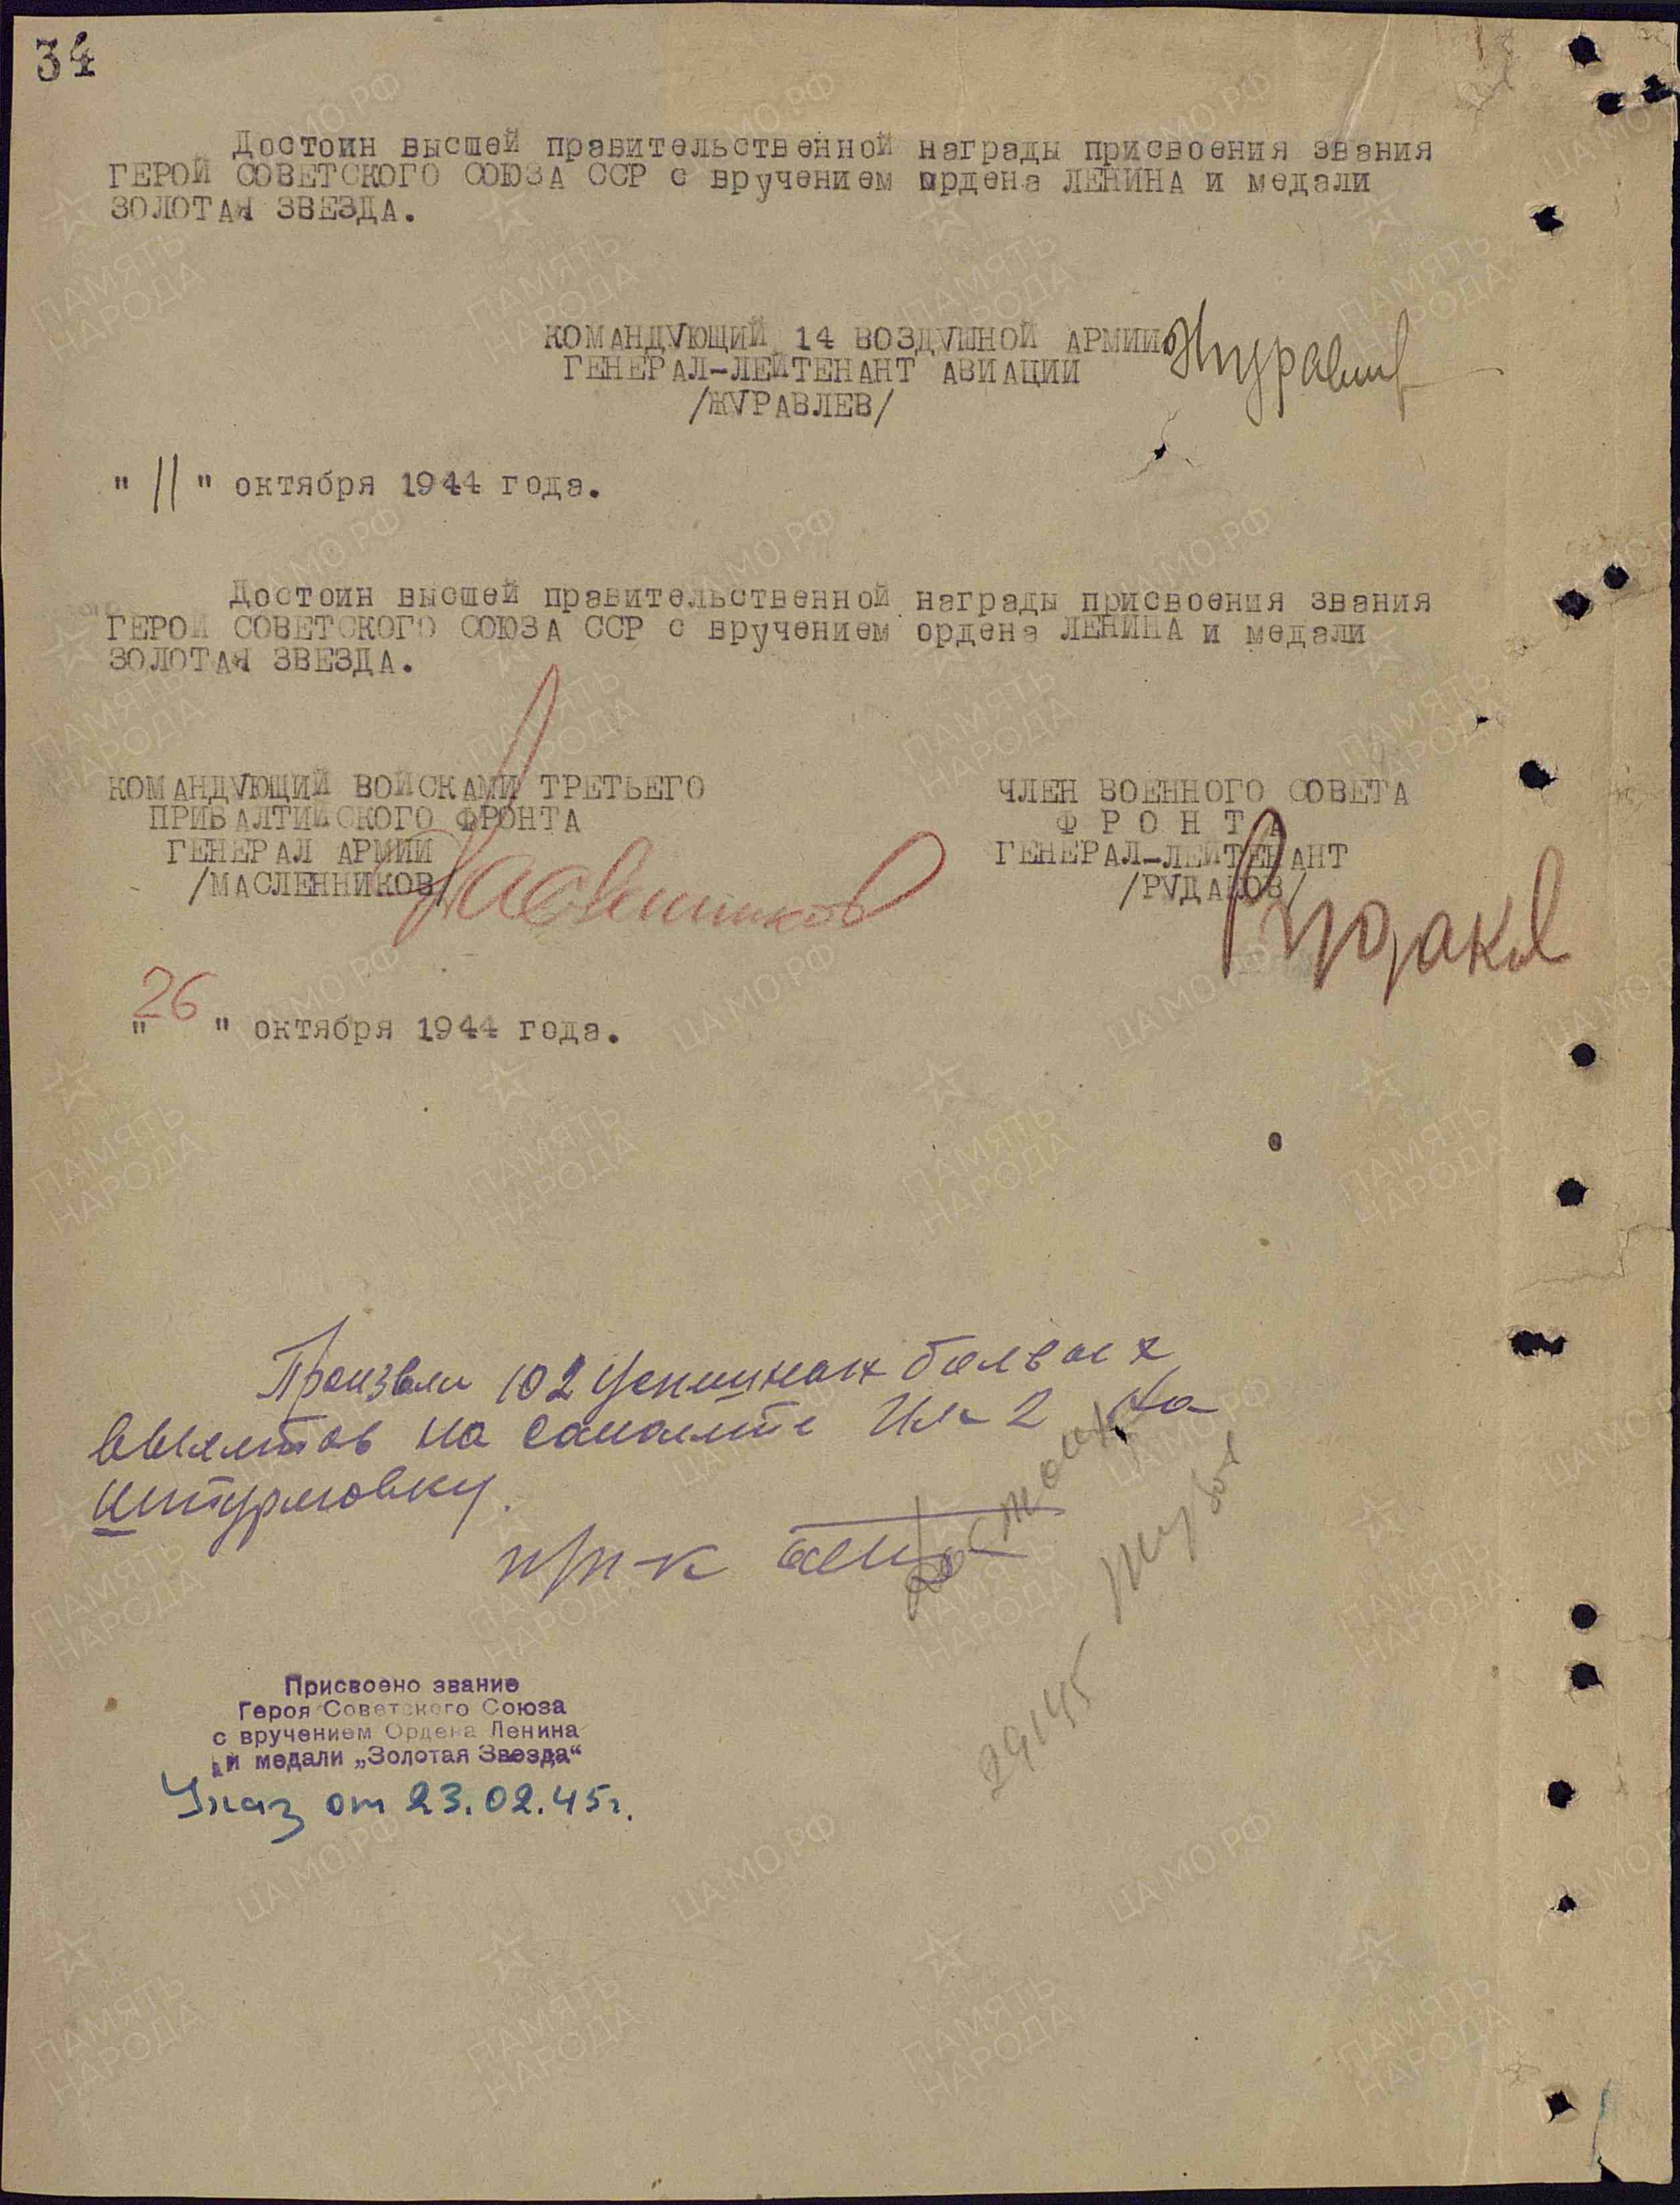 34
Достоин высшей правительственной награды присвоения звания
ГЕРОЙ СОВЕТСКОГО СОЮЗА ССР с вручением ордена ЛЕНИНА и медали
ЗОЛОТАЯ ЗВЕЗДА.
КОМАНДУЮЩИЙ 14 ВОЗДУШНОЙ АРМИИ
ГЕНЕРАЛ-ЛЕЙТЕНАНТ АВИАЦИИ
/ЖУРАВЛЕВ/
" 11 " октября 1944 года.
Достоин высшей правительственной награды присвоения звания
ГЕРОЙ СОВЕТСКОГО СОЮЗА ССР с вручением ордена ЛЕНИНА и медали
ЗОЛОТАЯ ЗВЕЗДА.
КОМАНДУЮЩИЙ ВОЙСКАМИ ТРЕТЬЕГО
ПРИБАЛТИЙСКОГО ФРОНТА
ГЕНЕРАЛ АРМИИ
/МАСЛЕННИКОВ/
Масленников
ЧЛЕН ВОЕННОГО СОВЕТА
Ф Р О Н Т А
ГЕНЕРАЛ-ЛЕЙТЕНАНТ
/РУДАКОВ/
Рудаков
" 26 " октября 1944 года.
Произвел 102 успешных боевых
вылетов на самолете Ил-2 на
штурмовку.
Достоин
29 1 45
Присвоено звание
Героя Советского Союза
с вручением Ордена Ленина
и медали „Золотая Звезда“
Указ от 23.02.45г.
ПАМЯТЬ НАРОДА
ЦА МО РФ